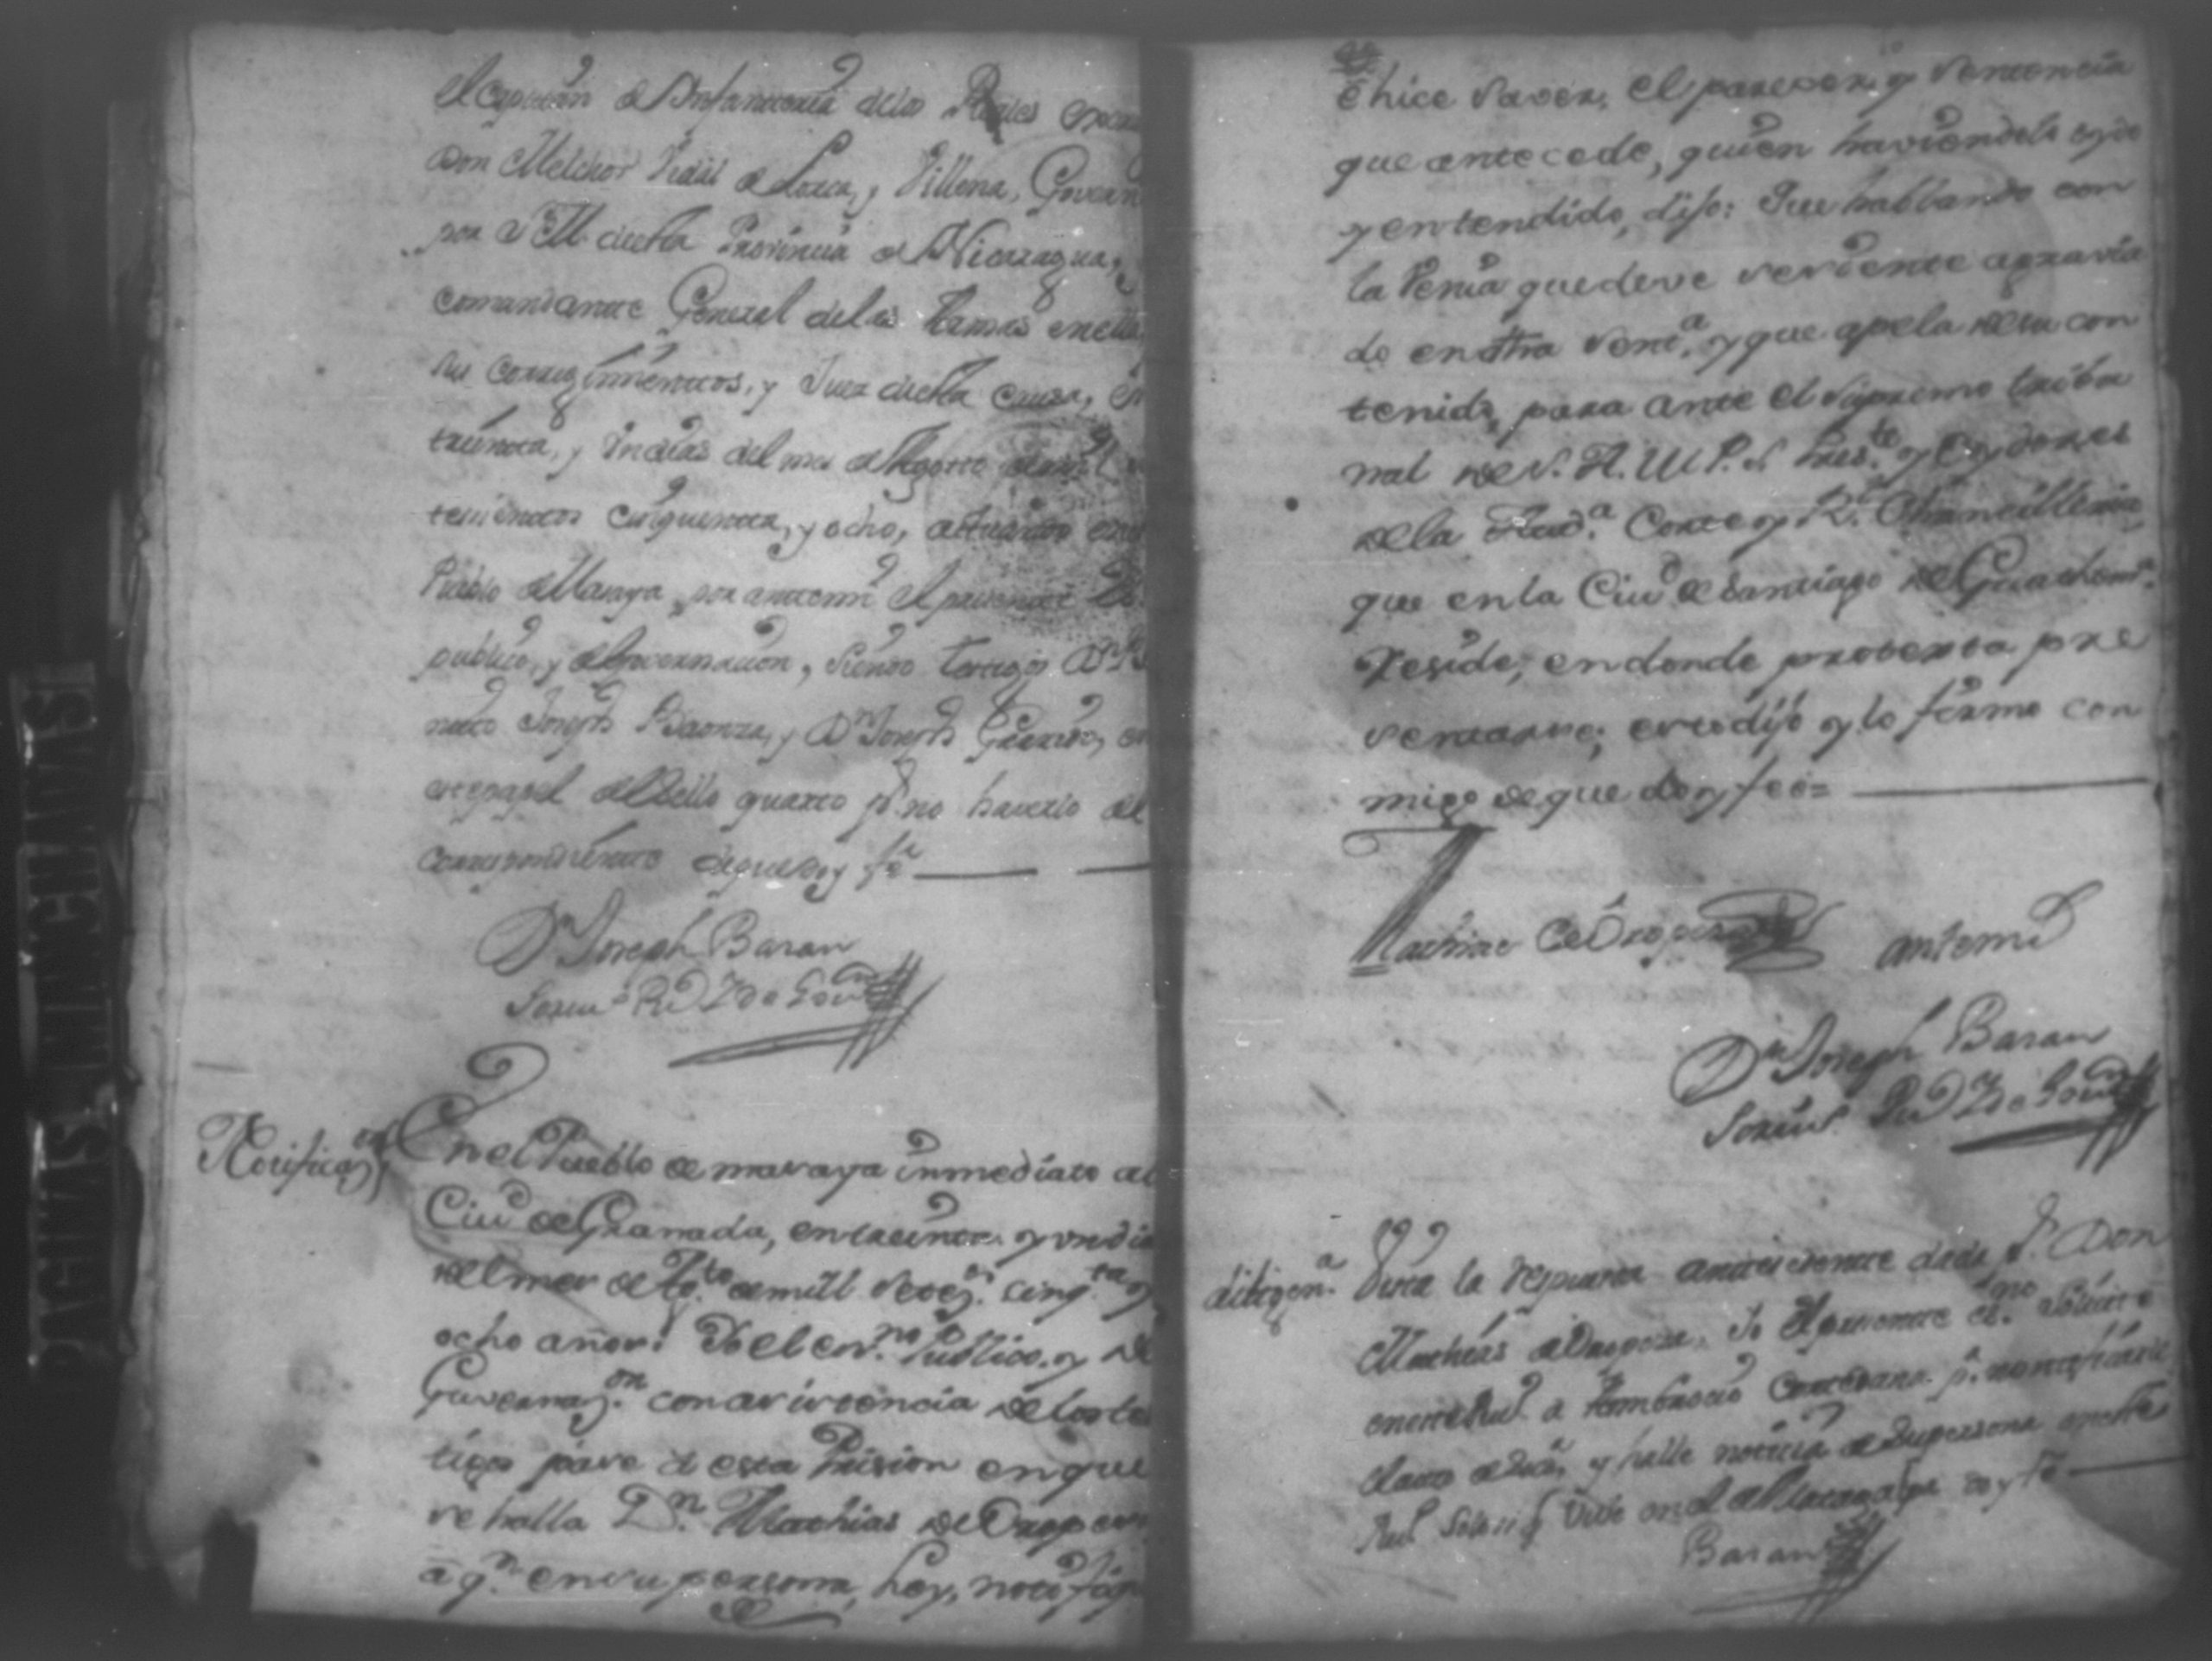 el Capitan de Infanteria delos Reales
Don Melchor Vidal de Lorca, y Villena, Govern
por S M. desta Provincia de Nicaragua, y
Comandante General delas Armas enella
sus corregimientos, y Juez desta causa, en
treinta, y un dias del mes de Agosto
tecientos cinquenta, y ocho,
Pueblo de Masaya, por antemi el presente
publico, y de Governacion, siendo testigos Dn
Joseph Baonza, y Dn Joseph
este papel del sello quarto pr. no haverlo del
correspondiente de que doy fe
Dn Joseph Baran
Scriuo Pubco I de Govon
Notificaon
En el Pueblo de masaya inmediato a
Ciud de Granada, en treinta y un dia
del mes de Agto. de mill setezs. cinqta. y
ocho años: Yo el esno. Publico, y de
Governazon. con asistencia de los tes
tigos pase a esta Prision en que
se halla Dn. Mathias de Oropesa
a qn. en su persona, ley, notifiqe
e hice saver, el parecer, y sentencia
que antecede, quien haviendola oydo
y entendido, dijo: Que hablando con
la venia que deve se siente agravia
do en dha senta. y que apela de su con
tenido, para ante el supremo tribu
nal de S. A. M. P. S. Preste. y Oydores
de la Auda. Corte y Rl. Chancilleria
que en la Ciud de Santiago de Guathema.
reside; en donde protexta pre
sentarse; esto dijo y lo firmo con
migo de que doy fee=
Mathias de Oropesa
antemi
Dn Joseph Baran
Scriuo. Pubco I de Govon
diligena.
Vista la respuesta antecedente dada pr. Don
Mathias de Oropesa. Yo el presente esno. solicite
en este Pueo. a Ambrocio pa. notificarle
y halle noticia de su persona en este
Pueo. solo si q vive en el de doy fe
Baran